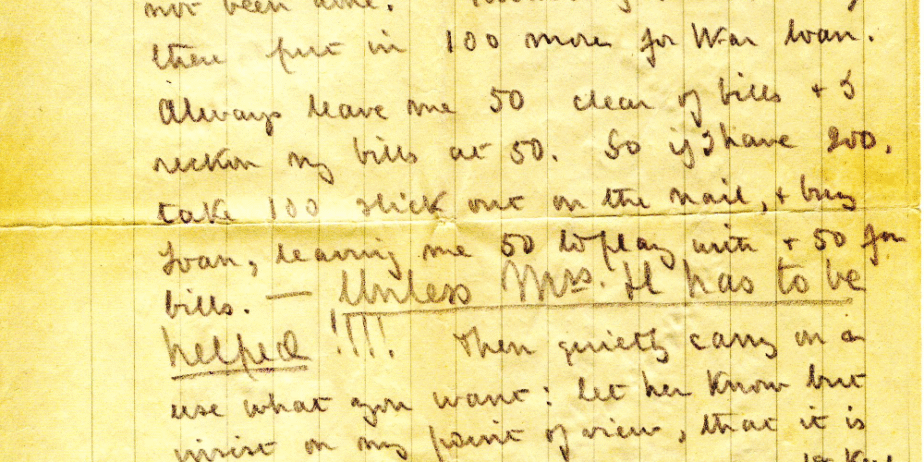 not been done.
then put in 100 more for War loan.
Always leave me 50 clear of bills + I
reckon my bills at 50. So if I have 200,
take 100 slick out on the nail, + buy
loan, leaving me 50 to play with + 50 for
bills. — Unless Mrs. H has to be
helped !!!! Then quietly carry on a
use what you want: let her know but
insist on my point of view, that it is